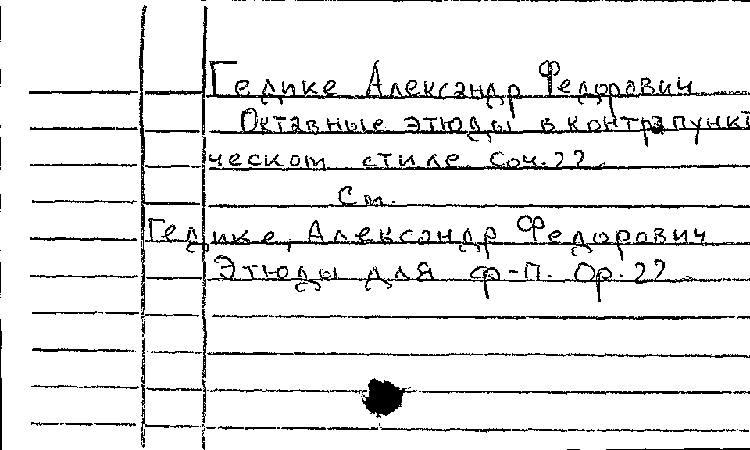 Гедике Александр Федорович
Октавные этюды в контрапункт
ческом стиле Соч. 22.
См.
Гедике, Александр Федорович
Этюды для ф-п. Op. 22